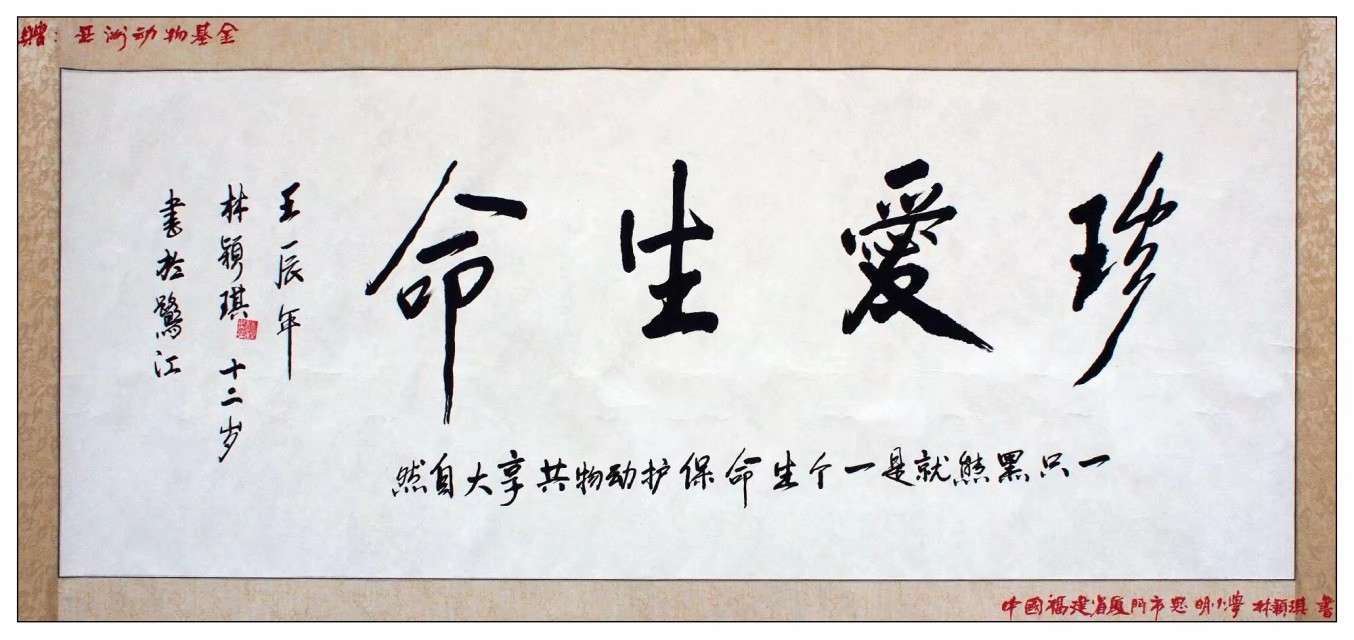 贈：亚洲动物基金
珍愛生命
一只黑熊就是一个生命保护动物共享大自然
壬辰年
林颖琪 十二岁
書於鷺江
中國福建省厦门市思明小學 林颖琪 書